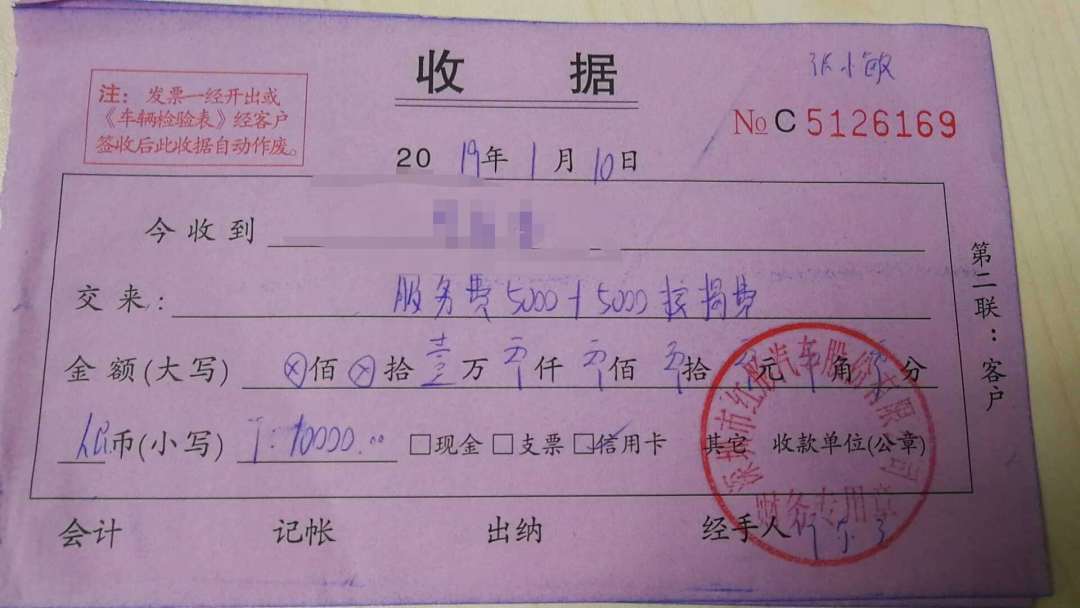 收 据
张小敏
注：发票一经开出或
《车辆检验表》经客户
签收后此收据自动作废。
№ C 5126169
2019年1月10日
今收到
交来：服务费5000+5000按揭费
金额(大写) ⊗佰⊗拾壹万零仟零佰零拾零元零角零分
人民币(小写) 10000.00 □现金□支票□信用卡 其它 收款单位(公章)
会计 记帐 出纳 经手人
第二联：客户
深圳市红彤汽车股份有限公司
财务专用章